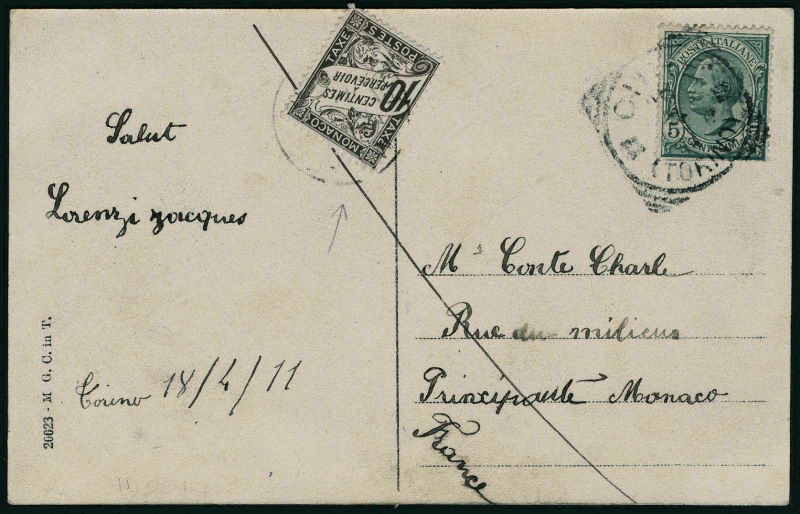 TAXE
POSTES
10
CENTIMES
A
PERCEVOIR
MONACO
TAXE
POSTE ITALIANE
5
CENTESIMI
(TORINO)
Salut
Lorenzi Jacques
Torino 18/4/11
20023 - M. G. C. in T.
Mr Conte Charle
Rue du milieus
Principauté Monaco
France